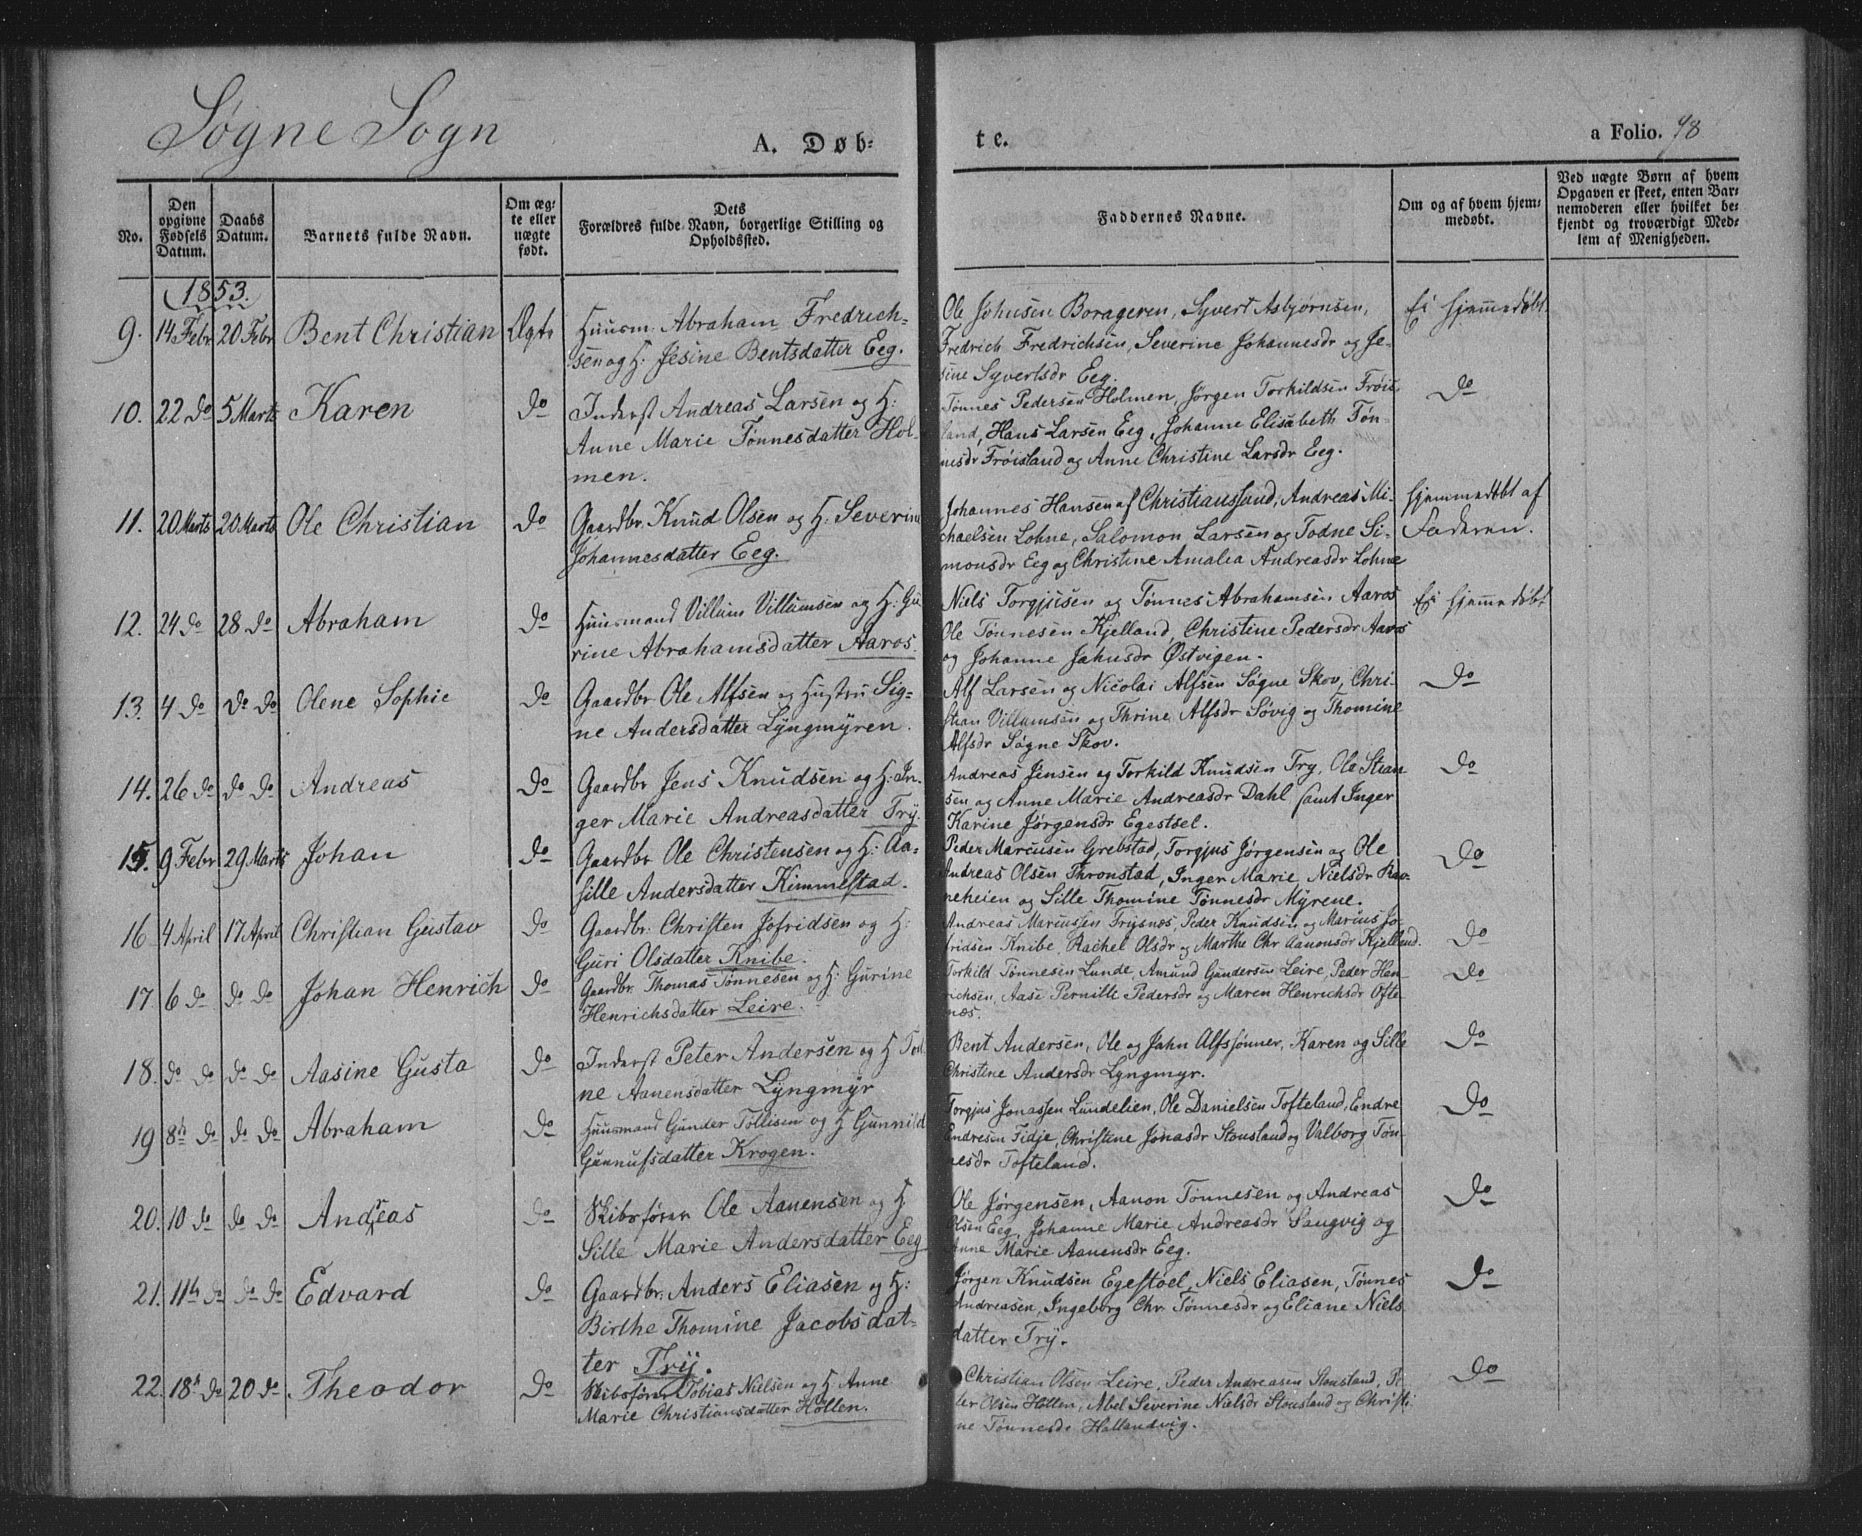 Søgne Sogn
A. Døb-
te.
a Folio. 98
No.
Den opgivne Fødsels Datum.
Daabs Datum.
Barnets fulde Navn.
Om ægte eller uægte født.
Dets Forældres fulde Navn, borgerlige Stilling og Opholdssted.
Faddernes Navne.
Om og af hvem hjemmedøbt.
Ved uægte Børn af hvem Opgaven er skeet, enten Barnemoderen eller hvilket bekjendt og troværdigt Medlem af Menigheden.
1853.
9. 14 Febr 20 Febr Bent Christian Ægte Huusm. Abraham Fredrich-
sen og H. Jesine Bentsdatter Eeg.
Ole Johnsen Borageren, Syvert Asbjørnsen,
Fredrich Fredrichsen, Severine Johannesdr og Je-
sine Syvertsdr Eeg.
Ei hjemmedøbt
10. 22 do 5 Marts Karen do Inderst Andreas Larsen og H:
Anne Marie Tønnesdatter Hol-
men.
Tønnes Pedersen Holmen, Jørgen Torkildsen Frøis-
land, Hans Larsen Eeg, Johanne Elisabeth Tøn-
nesdr Frøisland og Anne Christine Larsdr Eeg.
do
11. 20 Marts 20 Marts Ole Christian do Gaardbr. Knud Olsen og H: Severine
Johannesdatter Eeg.
Johannes Hansen af Christianssand, Andreas Mi-
chaelsen Lohne, Salomon Larsen og Todne Si-
monsdr Eeg og Christine Amalia Andreasdr Lohne
hjemmedøbt af
Faderen.
12. 24 do 28 do Abraham do Huusmand Villum Villumsen og H: Gu
rine Abrahamsdatter Aaros.
Niels Torgjusen og Tønnes Abrahamsen Aaros
Ole Tønnesen Kjelland, Christine Pedersdr Aaros
og Johanne Jahnsdr Østvigen.
Ei hjemmedøbt
13. 4 do do do Olene Sophie do Gaardbr Ole Alfsen og Hustru Sig-
ne Andersdatter Lÿngmÿren.
Alf Larsen og Nicolai Alfsen Søgne Skov, Chri-
stian Villumsen og Thrine Alfsdr Søvig og Thomine
Alfsdr Søgne Skov.
do
14. 26 do do do Andreas do Gaardbr Jens Knudsen og H: In-
ger Marie Andreasdatter Trÿ.
Andreas Jensen og Torkild Knudsen Try, Ole Stian
sen og Anne Marie Andreasdr Dahl samt Inger
Karine Jørgensdr Egestøel.
do
15. 9 Febr 29 Marts Johan do Gaardbr Ole Christensen og H: Aa-
sille Andersdatter Kimmestad.
Peder Marcusen Grebstad, Torgjus Jørgensen og Ole
Andreas Olsen Thronstad, Inger Marie Nielsdr Rav-
neheien og Sille Thomine Tønnesdr Mÿrene.
do
16 4 April 17 April Christian Gustav do Gaardbr: Christen Jofridsen og H:
Guri Olsdatter Knibe.
Andreas Marcusen Trysnes, Peder Knudsen og Marius Jo-
fridsen Knibe, Rachel Olsdr og Marthe Chr Aanonsdr Kjelland.
do
17. 6 do do do Johan Henrich do Gaardbr. Thomas Tønnesen og H: Gurine
Henrichsdatter Leire.
Torkild Tønnesen Lunde, Amund Gundersen Leire, Peder Hen
richsen, Aase Pernille Pedersdr og Maren Henrichsdr Ofte
næs.
do
18. do do do do Aasine Gusta do Inderst Peter Andersen og H
ne Aanensdatter Lÿngmÿr
Bent Andersen, Ole og Jahn Alfssønner, Karen og Sille
Christine Andersdr Lyngmyr.
do
19 8de do do do Abraham do Huusmand Gunder Tollisen og H Gunnild
Gunnufsdatter Krogen.
Torgjus Jonassen Lundelien, Ole Danielsen Tofteland, Endre
Endresen Tidje, Christine Jonasdr Stousland og Valborg Tøn-
nesdr Tofteland.
do
20. 10 do do do Andreas do Skibsfører Ole Aanensen og H
Sille Marie Andersdatter Eeg
Ole Jørgensen, Aanon Tønnesen og Andreas
Olsen Eeg, Johanne Marie Andreasdr Sangvig og
Anne Marie Aanensdr Eeg.
do
21. 11te do do do Edvard do Gaardbr. Anders Eliasen og H:
Birthe Thomine Jacobsdat-
ter Trÿ.
Jørgen Knudsen Egestøel, Niels Eliasen, Tønnes
Andreasen, Ingeborg Chr. Tønnesdr og Eliane Niels
datter Trÿ.
do
22. 18de do 20 do Theodor do Skibsfører Tobias Nielsen og H Anne
Marie Christiansdatter Høllen.
Christian Olsen Leire, Peder Andreasen Stousland, Pe
der Olsen Høllen, Abel Severine Nielsdr Stousland og Christi
ne Tønnesdr Hallandvig.
do